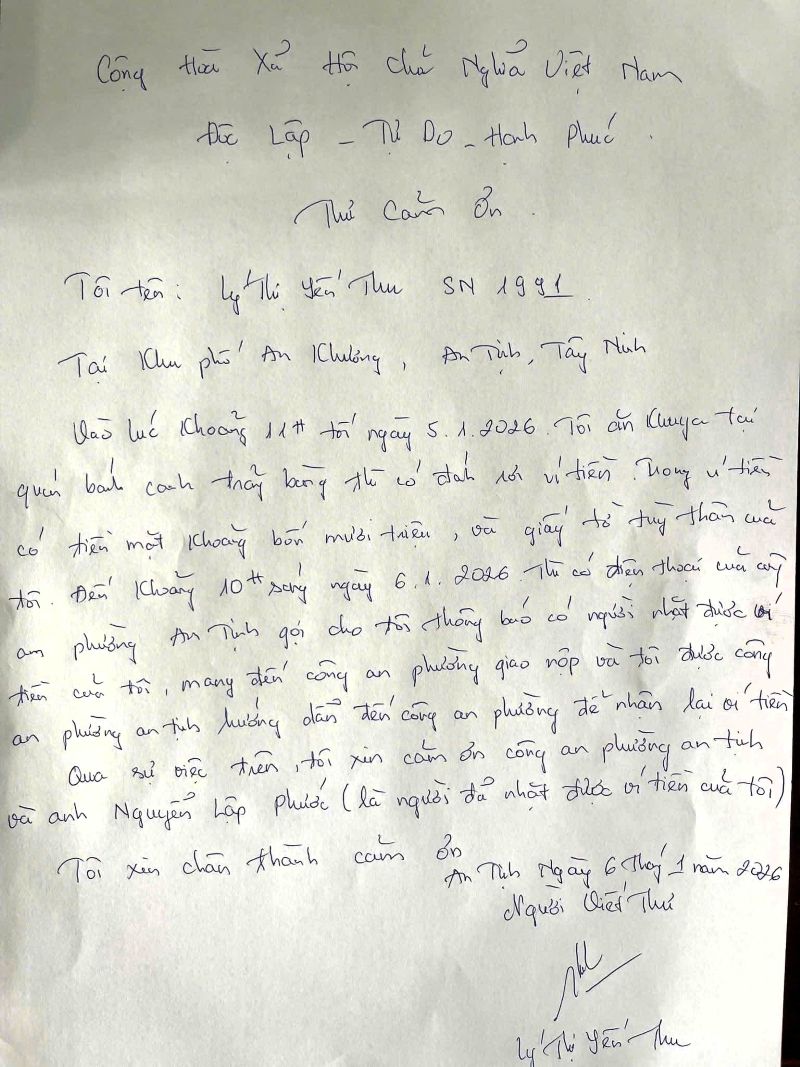 Cộng Hoà Xã Hội Chủ Nghĩa Việt Nam
Độc Lập - Tự Do - Hạnh Phúc.
Thư Cảm Ơn.
Tôi tên: Lý Thị Yến Thu SN 1991
Tại Khu phố An Khương, An Tịnh, Tây Ninh
Vào lúc Khoảng 11H tối ngày 5.1.2026. Tôi ăn Khuya tại
quán bánh canh trảng bàng thì có đánh rơi ví tiền. Trong ví tiền
có tiền mặt Khoảng bốn mươi triệu, và giấy tờ tuỳ thân của
tôi. Đến Khoảng 10H sáng ngày 6.1.2026. Thì có điện thoại của công
an phường An Tịnh gọi cho tôi thông báo có người nhặt được ví
tiền của tôi, mang đến công an phường giao nộp và tôi được công
an phường an tịnh hướng dẫn đến công an phường để nhận lại ví tiền
Qua sự việc trên, tôi xin cảm ơn công an phường an tịnh
và anh Nguyễn Lập Phước (là người đã nhặt được ví tiền của tôi)
Tôi xin chân thành cảm ơn
An Tịnh Ngày 6 Tháng 1 năm 2026
Người Viết Thư
Lý Thị Yến Thu